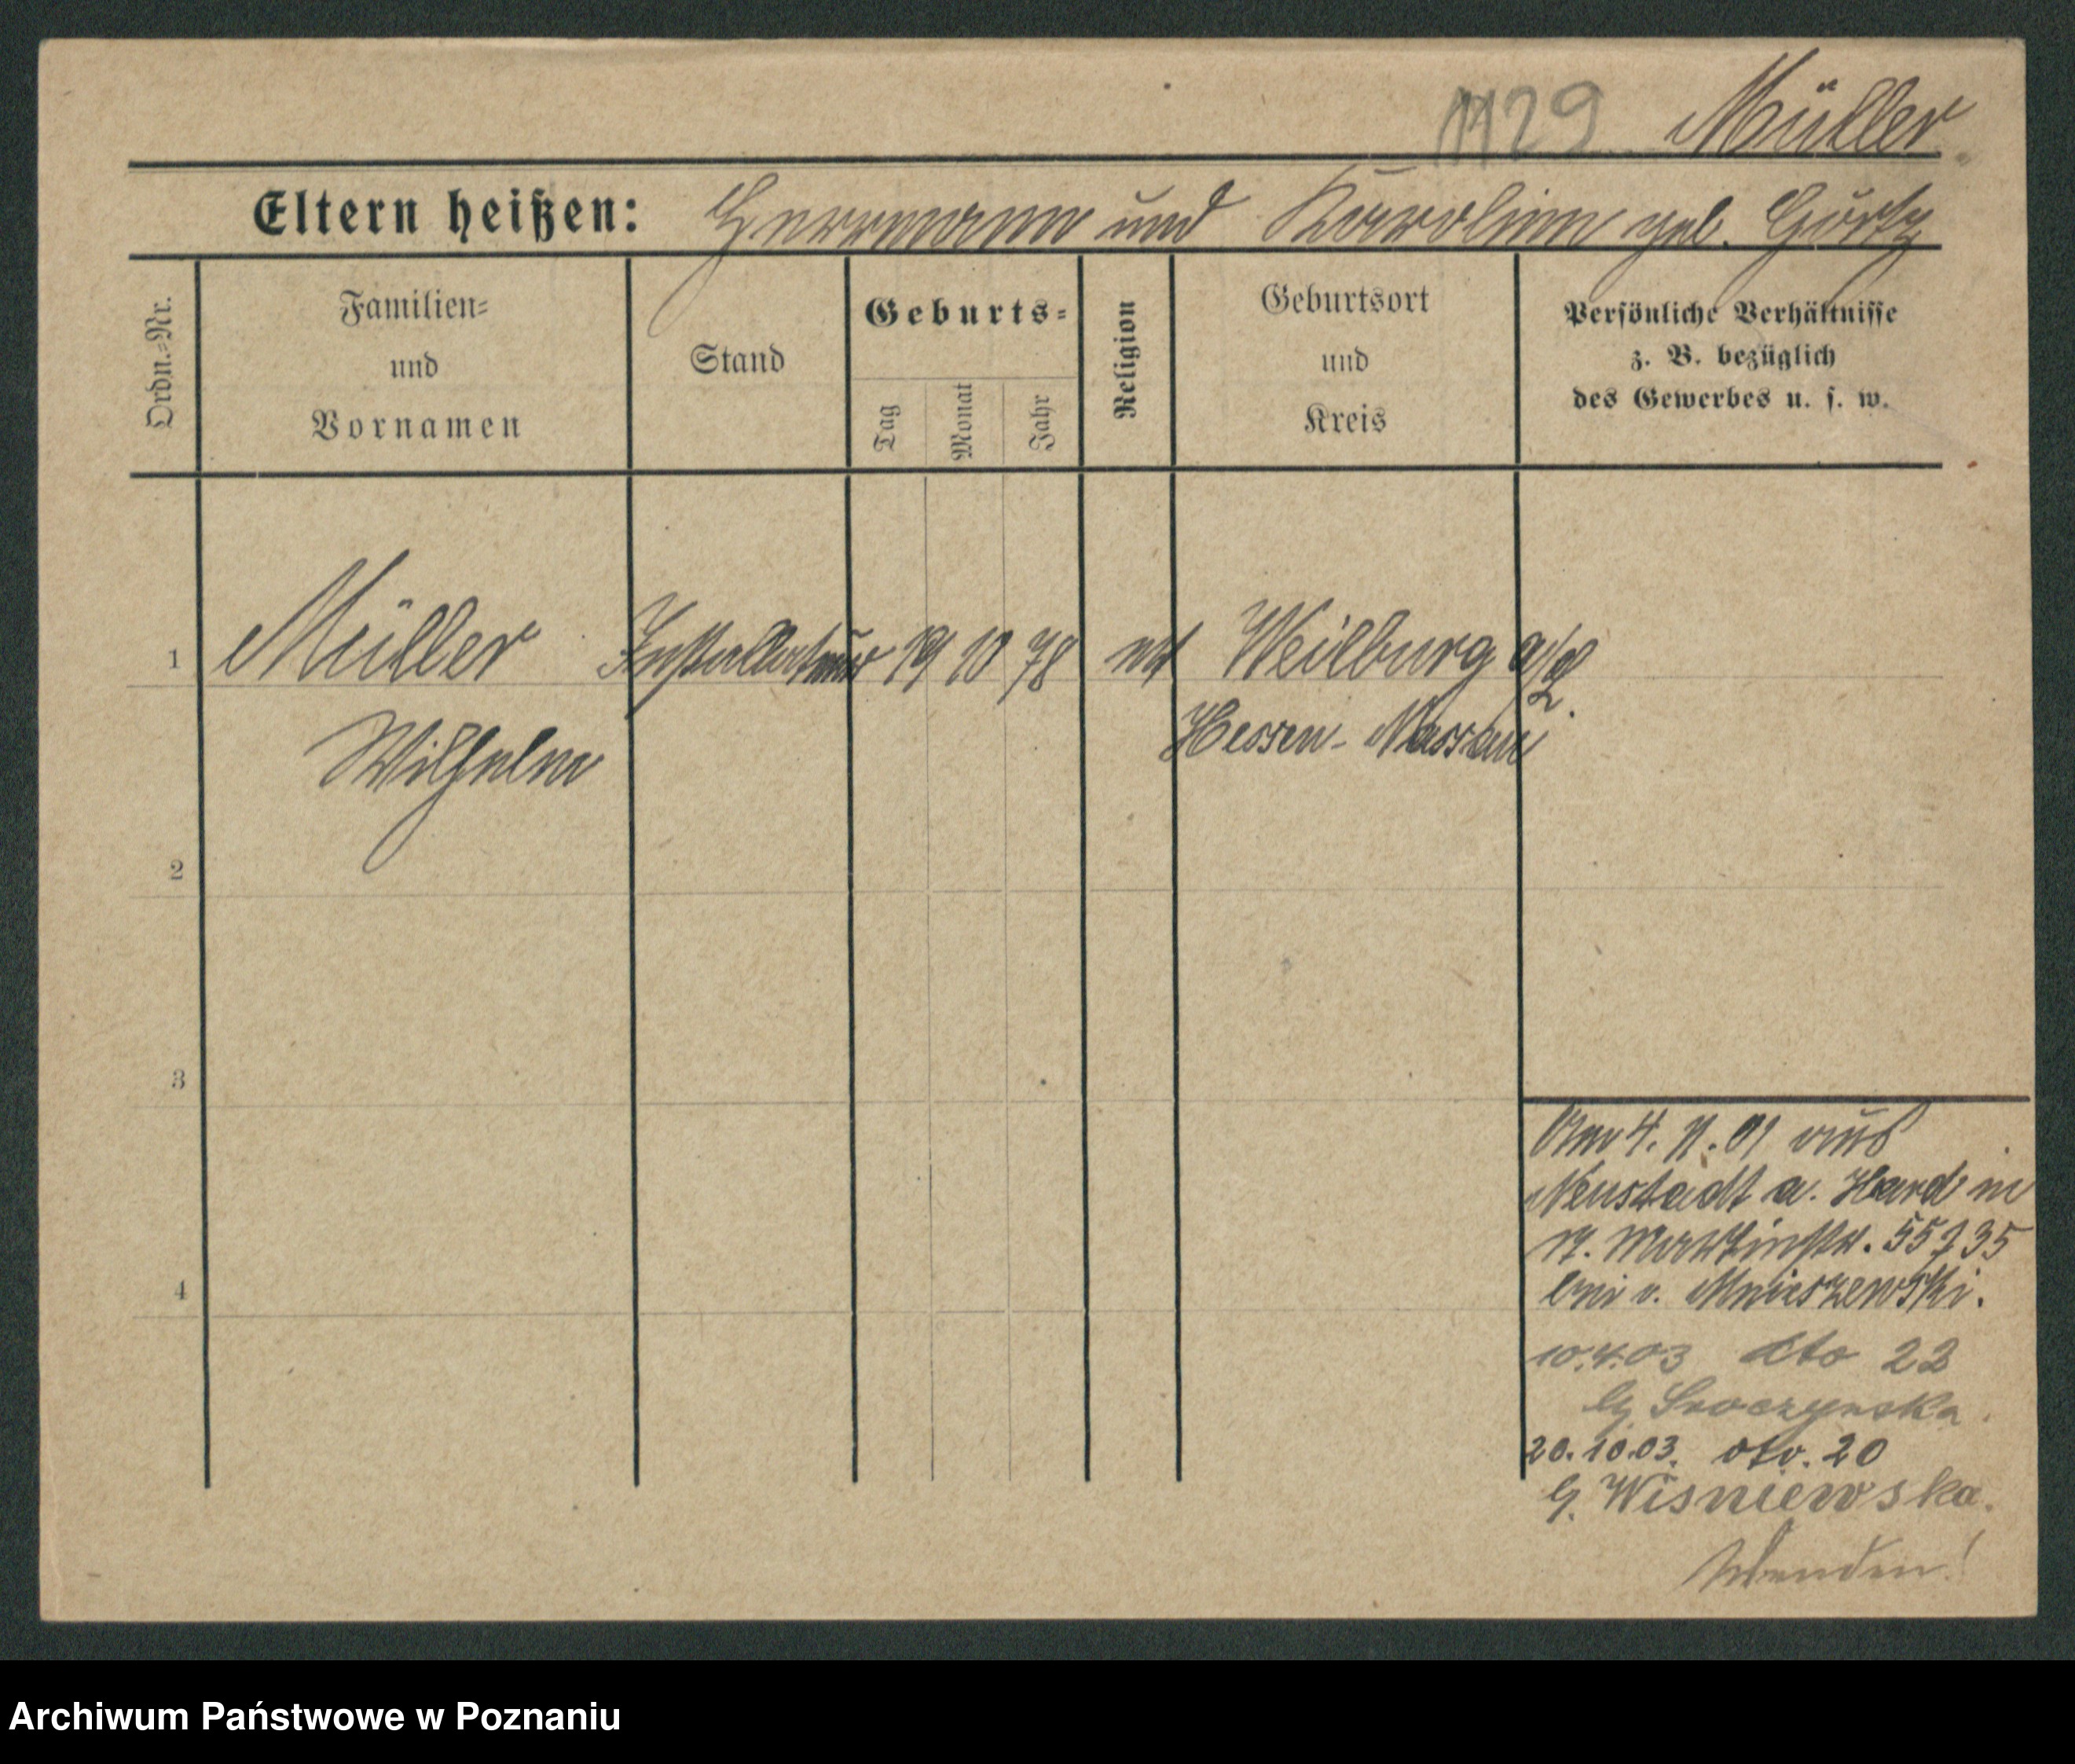 1129 Müller.
Eltern heißen: Herrmann und Karoline geb. Görtz
Ordn.=Nr.
Familien=
und
Vornamen
Stand
Geburts=
Tag
Monat
Jahr
Religion
Geburtsort
und
Kreis
Persönliche Verhältnisse
z. B. bezüglich
des Gewerbes u. s. w.
1 Müller Installateur 19 10 78 ev Weilburg a/d L.
Wilhelm Hessen-Nassau
2
3
4
Am 4. 11. 01 aus
Neustadt a. Hard in
Martinstr. 55/35
bei v. Mnieszewski.
10.4.03 dto 22
b/ Sroczynska.
20.10.03. dto. 20
b/. Wisniewska.
Wenden!
Archiwum Państwowe w Poznaniu